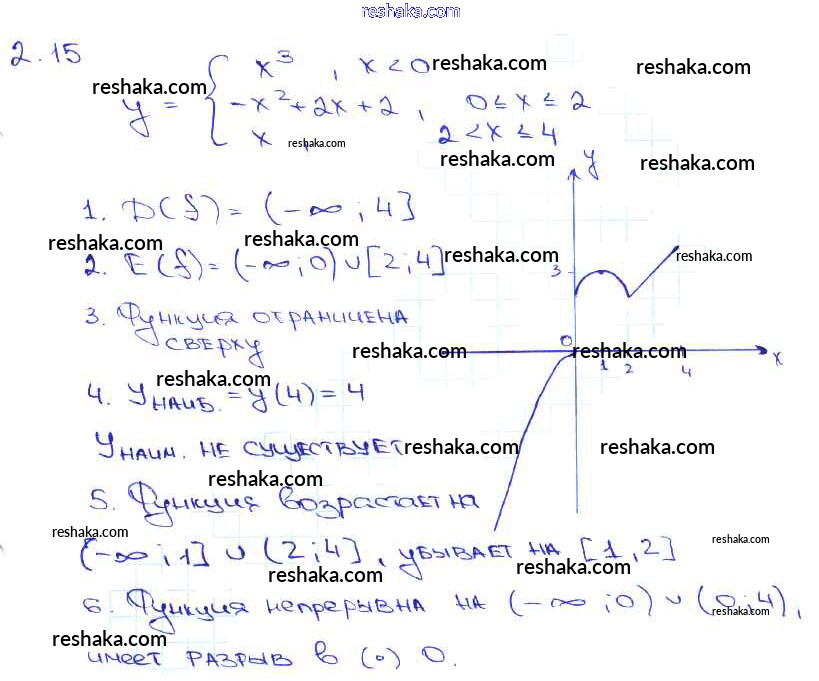 reshaka.com
2.15
x³, x<0 reshaka.com reshaka.com
reshaka.com
y = { -x²+2x+2, 0≤x≤2
x, reshaka.com 2<x≤4
reshaka.com reshaka.com
y
1. D(f) = (-∞; 4]
reshaka.com reshaka.com
2. E(f) = (-∞; 0) ∪ [2; 4] reshaka.com reshaka.com
3
3. Функция ограничена
сверху reshaka.com reshaka.com
0 x
1 2 4
reshaka.com
4. Yнаиб. = y(4) = 4
Yнаим. не существует reshaka.com reshaka.com
reshaka.com
5. Функция возрастает на
reshaka.com reshaka.com
(-∞; 1] ∪ (2; 4], убывает на [1, 2]
reshaka.com reshaka.com
6. Функция непрерывна на (-∞; 0) ∪ (0; 4),
reshaka.com
reshaka.com
имеет разрыв в (•) 0.